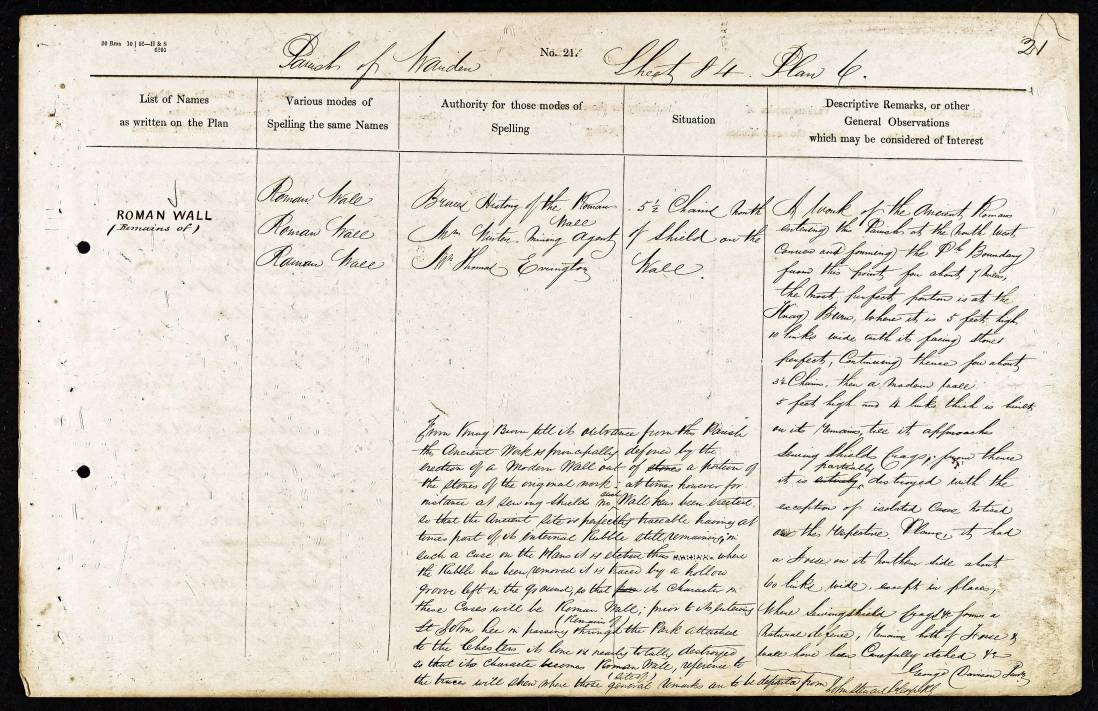 20 Bms 10 | 56—H & S
6201
21
Parish of Warden No. 21. Sheet 84. Plan 6.
List of Names
as written on the Plan
Various modes of
Spelling the same Names
Authority for those modes of
Spelling
Situation
Descriptive Remarks, or other
General Observations
which may be considered of Interest
ROMAN WALL
(Remains of)
Roman Wall
Roman Wall
Roman Wall
Bruces History of the Roman
Wall
Mining Agent
Mr. Thomas Errington
5 ½ Chains North
of Shield on the
Wall.
A work of the Ancient Romans
entering this Parish at the North West
Corner and forming the Ph. Boundary
from this point, for about 7 Miles,
the most perfect portion is at the
Knag Burn, where it is 5 feet high,
10 links wide with it facing Stones
perfect, Continuing thence for about
Chains, then a modern wall
5 feet high and 4 links thick is built
on its remains, till it approaches
Sewing Shields Crags; from thence
partially
it is entirely destroyed with the
exception of isolated Cases noticed
on the respective Plans, it had
a Fosse on its northern side about
60 links wide, except in places,
Where Sewingshield Crags &c forms a
natural defence, remains both of Fosse &
wall have been Carefully etched &c
George Davison
From Knag Burn till its entrance from this Parish
the Ancient Work is principally defined by the
erection of a Modern Wall out of stones a portion of
the stones of the original work; at times however for
instance at sewing shield no such Wall has been erected
so that the Ancient site is perfectly traceable having at
times part of its internal Rubble still remaining; in
such a case on the Plans it is thus where
the Rubble has been removed it is traced by a hollow
grove left in the ground, so that its Character in
these Cases will be Roman Wall; prior to its entering
(Remains of)
St John Lee in passing through the Park attached
to the Chesters its line is nearly totally destroyed
so that its character becomes Roman Wall, reference to
(site of)
the traces will shew where those general remarks are to be departed from